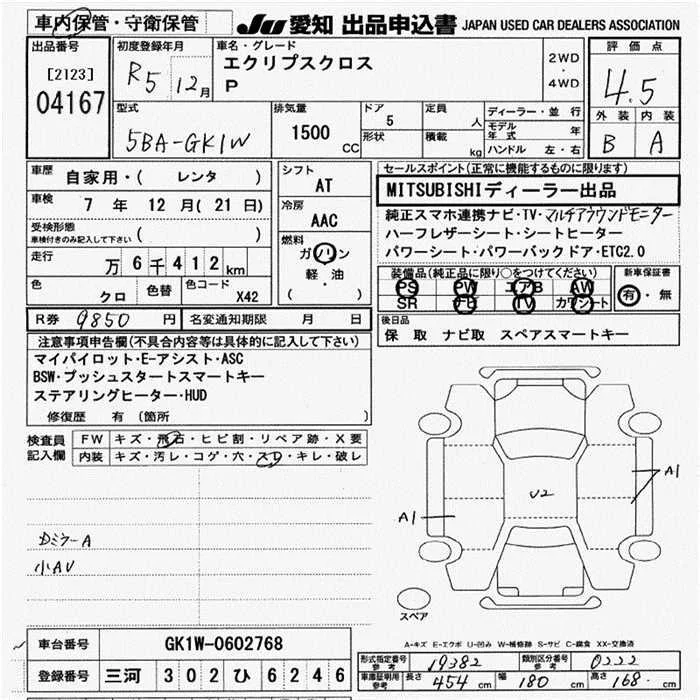 車内保管・守衛保管
JU 愛知 出品申込書 JAPAN USED CAR DEALERS ASSOCIATION
出品番号
[2123]
04167
初度登録年月
R5 12月
車名・グレード
エクリプスクロス
P
2WD
・
4WD
評価点
4.5
外装 内装
B A
型式
5BA-GK1W
排気量
1500 CC
ドア
5
形状
定員
人
積載
kg
ディーラー・並行
モデル年式 年
ハンドル 左・右
車歴
自家用・( レンタ )
車検
7 年 12 月 ( 21 日)
受検形態
車検付きのみ記入して下さい ( )
走行
万 6 千 4 1 2 km
色
クロ
色替
色コード
X42
シフト
AT
冷房
AAC
燃料
ガソリン
軽・油
( )
セールスポイント(正常に機能するものに限ります)
MITSUBISHIディーラー出品
純正スマホ連携ナビ・TV・マルチアラウンドモニター
ハーフレザーシート・シートヒーター
パワーシート・パワーバックドア・ETC2.0
装備品(純正品に限り○をつけてください)
PS PW エアB AW
SR ナビ TV カワシート
新車保証書
有・無
R券 9850 円
名変通知期限 月 日
後日品
保 取 ナビ取 スペアスマートキー
注意事項申告欄(不具合内容等は具体的に記入して下さい)
マイパイロット・E-アシスト・ASC
BSW・プッシュスタートスマートキー
ステアリングヒーター・HUD
修復歴 有 (箇所 )
検査員記入欄
FW キズ・飛石・ヒビ割・リペア跡・X要
内装 キズ・汚レ・コゲ・穴・スレ・キレ・破レ
DミラーA
小AU
U2
A1
A1
スペア
A-キズ E-エクボ U-凹み W-補修跡 S-サビ C-腐食 XX-交換済
車台番号 GK1W-0602768
登録番号 三河 3 0 2 ひ 6 2 4 6
形式指定番号 参考 19382
類別区分番号 参考 0222
車庫証明用 参考 長さ 454 cm 幅 180 cm 高さ 168 cm